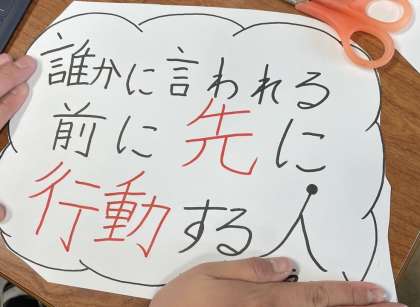 誰かに言われる
前に先に
行動する人